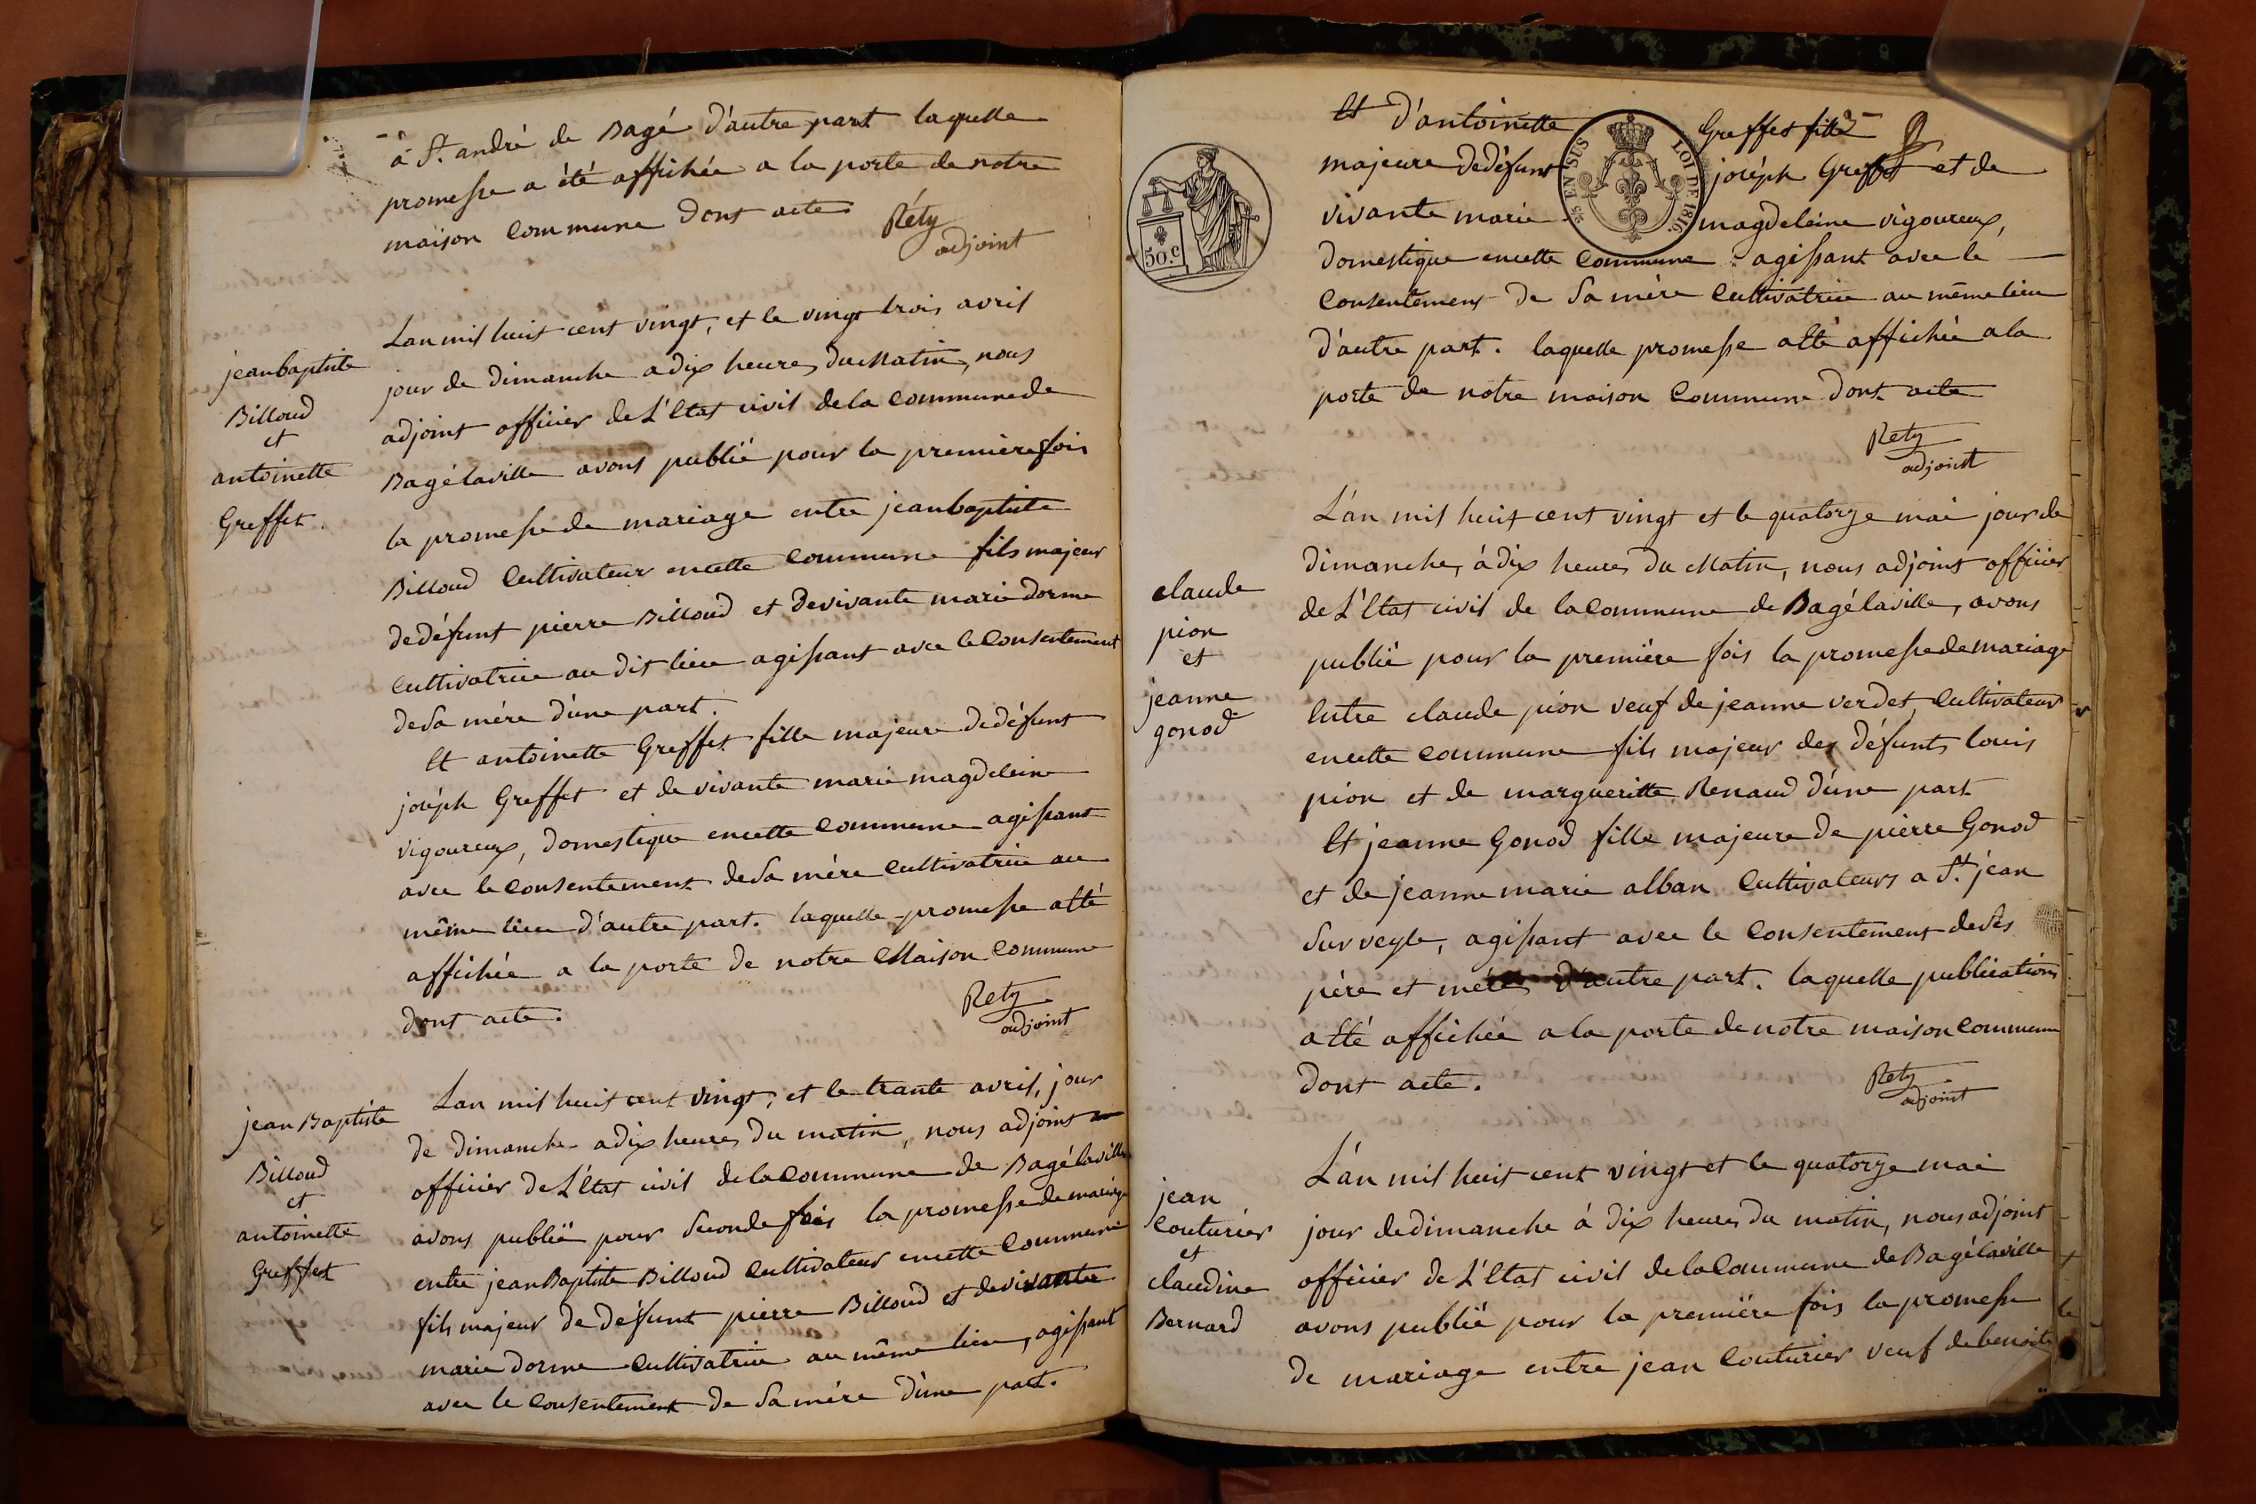 à St. andré de Bagé d'autre part laquelle
promesse a été affichée a la porte de notre
maison commune dont acte
Réty
adjoint
jean baptiste
Billoud
et
antoinette
Greffet.
Lan mil huit cent vingt, et le vingt trois avril
jour de dimanche a dix heures du Matin, nous
adjoint officier de L'Etat civil de la Commune de
Bagé la ville avons publié pour la première fois
la promesse de mariage entre jean baptiste
Billoud Cultivateur en cette Commune fils majeur
de défunt pierre Billoud et de vivante marie dorme
Cultivatrice au dit lieu agissant avec le Consentement
de Sa mére d'une part.
Et antoinette Greffet fille majeure de défunt
joséph Greffet et de vivante marie magdeleine
vigoureux, domestique en cette Commune agissant
avec le consentement de Sa mére Cultivatrice au
même lieu d'autre part. laquelle promesse a été
affichée a la porte de notre Maison Commune
dont acte.
Rety
adjoint
jean Baptiste
Billoud
et
antoinette
Greffet
Lan mil huit cent vingt, et le trante avril, jour
de dimanche a dix heures du matin, nous adjoint
officier de L'Etat civil de la Commune de Bagé la ville
avons publié pour Seconde fois la promesse de mariage
entre jean Baptiste Billoud Cultivateur en cette Commune
fils majeur de défunt pierre Billoud et de vivante
marie dorme Cultivatrice au même lieu, agissant
avec le Consentement de Sa mére d'une part.
50.c
5 EN SUS
LOI DE 1816.
Et d'antoinette Greffet fille
majeure de défunt joséph Greffet et de
vivante marie magdeleine vigoureux,
domestique en cette Commune agissant avec le
Consentement de Sa mère Cultivatrice au même lieu
d'autre part. laquelle promesse a été affichée a la
porte de notre maison Commune dont acte
Rety
adjoint
claude
pion
et
jeanne
gonod
L'án mil huit cent vingt et le quatorze mai jour de
dimanche, à dix heures du Matin, nous adjoint officier
de L'Etat civil de la Commune de Bagé la ville, avons
publié pour la première fois la promesse de mariage
Entre claude pion veuf de jeanne verdet, Cultivateur
en cette commune fils majeur des défunts louis
pion et de margueritte Renaud d'une part
Et jeanne Gonod fille majeure de pierre Gonod
et de jeanne marie alban Cultivateurs a St. jean
Sur veyle, agissant avec le Consentement de Ses
père et mère d'autre part. laquelle publications
a Eté affichée a la porte de notre maison commune
dont acte.
Rety
adjoint
jean
Couturier
et
claudine
Bernard
L'án mil huit cent vingt et le quatorze mai
jour de dimanche à dix heures du matin, nous adjoint
officier de L'Etat civil de la Commune de Bagé la ville
avons publié pour la première fois la promesse
de mariage entre jean Couturier veuf de benoite